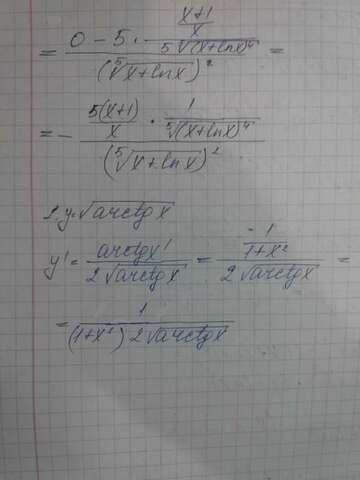 = \frac{0 - 5 \cdot \frac{\frac{x+1}{x}}{5\sqrt[5]{(x+lnx)^4}}}{(\sqrt[5]{x+lnx})^2} =
= - \frac{\frac{5(x+1)}{x} \cdot \frac{1}{\sqrt[5]{(x+lnx)^4}}}{(\sqrt[5]{x+lnx})^2}
2. y = \sqrt{arctgx}
y' = \frac{arctgx'}{2\sqrt{arctgx}} = \frac{\frac{1}{1+x^2}}{2\sqrt{arctgx}} =
= \frac{1}{(1+x^2) 2\sqrt{arctgx}}